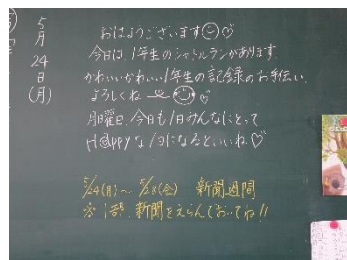 5月24日(月)
おはようございます
今日は、1年生のシャトルランがあります。
かわいいかわいい1年生の記録のお手伝い、
よろしくね
月曜日、今日も1日みんなにとって
Happyな1日になるといいね♡
5/24(月)~5/28(金) 新聞週間
※ 1部、新聞をえらんでおいてね!!